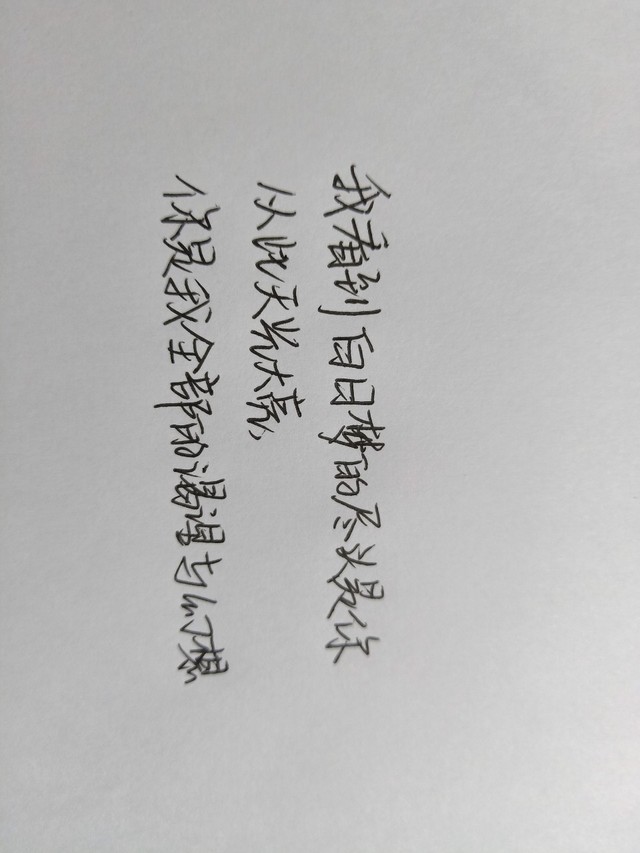 我看到白日梦的尽头是你
从此天光大亮,
你是我全部的渴望与幻想